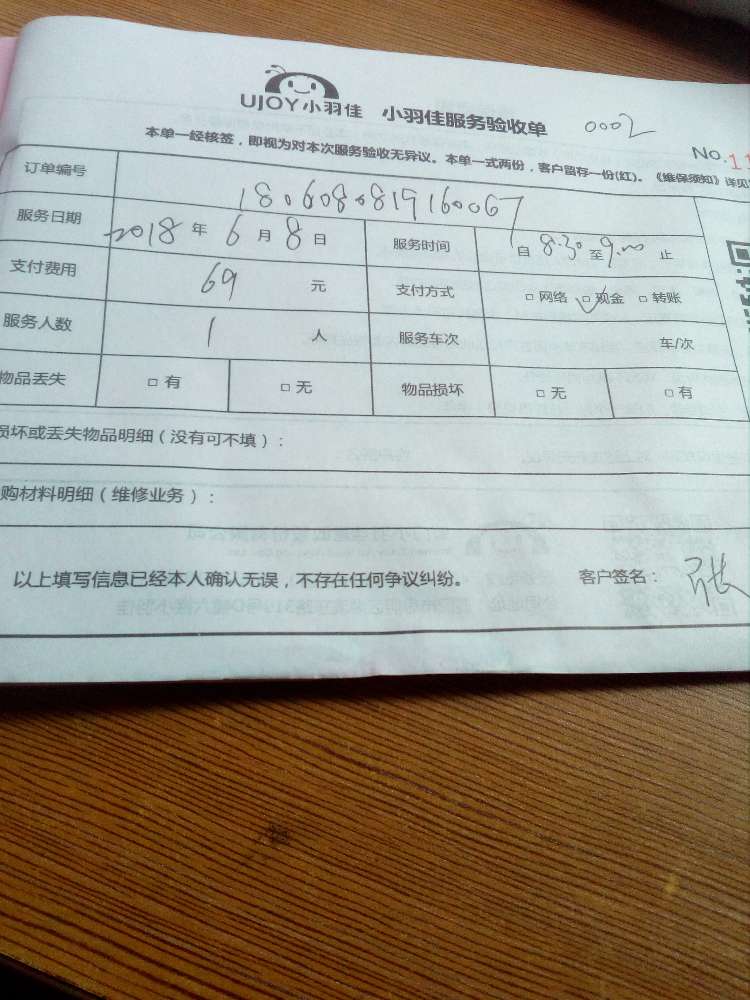 UJOY小羽佳 小羽佳服务验收单 0002
NO.11
本单一经核签，即视为对本次服务验收无异议。本单一式两份，客户留存一份(红)。《维保须知》详见
订单编号 180608819160067
服务日期 2018年6月8日 服务时间 自8:30至9:00止
支付费用 69元 支付方式 □网络 ☑现金 □转账
服务人数 1人 服务车次 车/次
物品丢失 □有 □无 物品损坏 □无 □有
损坏或丢失物品明细（没有可不填）：
购材料明细（维修业务）：
以上填写信息已经本人确认无误，不存在任何争议纠纷。 客户签名：张